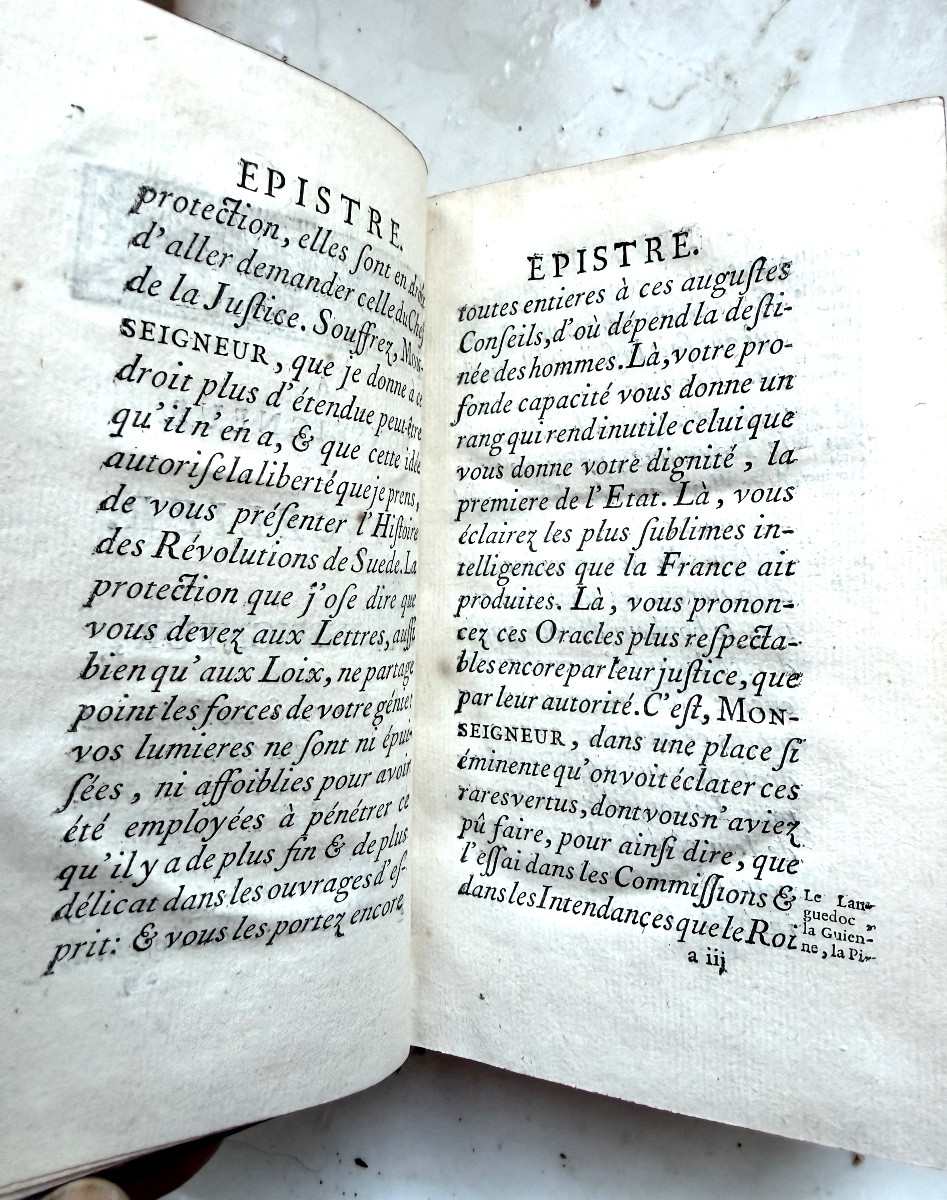 EPISTRE.
protection, elles ſont en droit
d'aller demander celle du Chef
de la Juſtice. Souffrez, MON-
SEIGNEUR, que je donne a ce
droit plus d'étendue peut-être
qu'il n'en a, & que cette idée
autoriſe la liberté que je prens,
de vous préſenter l'Hiſtoire
des Révolutions de Suede. La
protection que j'oſe dire que
vous devez aux Lettres, auſſi
bien qu'aux Loix, ne partage
point les forces de votre génie:
vos lumieres ne ſont ni épui-
ſées, ni affoiblies pour avoir
été employées à pénétrer ce
qu'il y a de plus fin & de plus
délicat dans les ouvrages d'eſ-
prit: & vous les portez encore
EPISTRE.
toutes entieres à ces auguſtes
Conſeils, d'où dépend la deſti-
née des hommes. Là, votre pro-
fonde capacité vous donne un
rang qui rend inutile celui que
vous donne votre dignité, la
premiere de l'Etat. Là, vous
éclairez les plus ſublimes in-
telligences que la France ait
produites. Là, vous pronon-
cez ces Oracles plus reſpecta-
bles encore par leur juſtice, que
par leur autorité. C'eſt, MON-
SEIGNEUR, dans une place ſi
éminente qu'on voit éclater ces
rares vertus, dont vous n'aviez
pû faire, pour ainſi dire, que
l'eſſai dans les Commiſſions &
dans les Intendances que le Roi
Le Lan-
guedoc,
la Guien-
ne, la Pi-
a iij